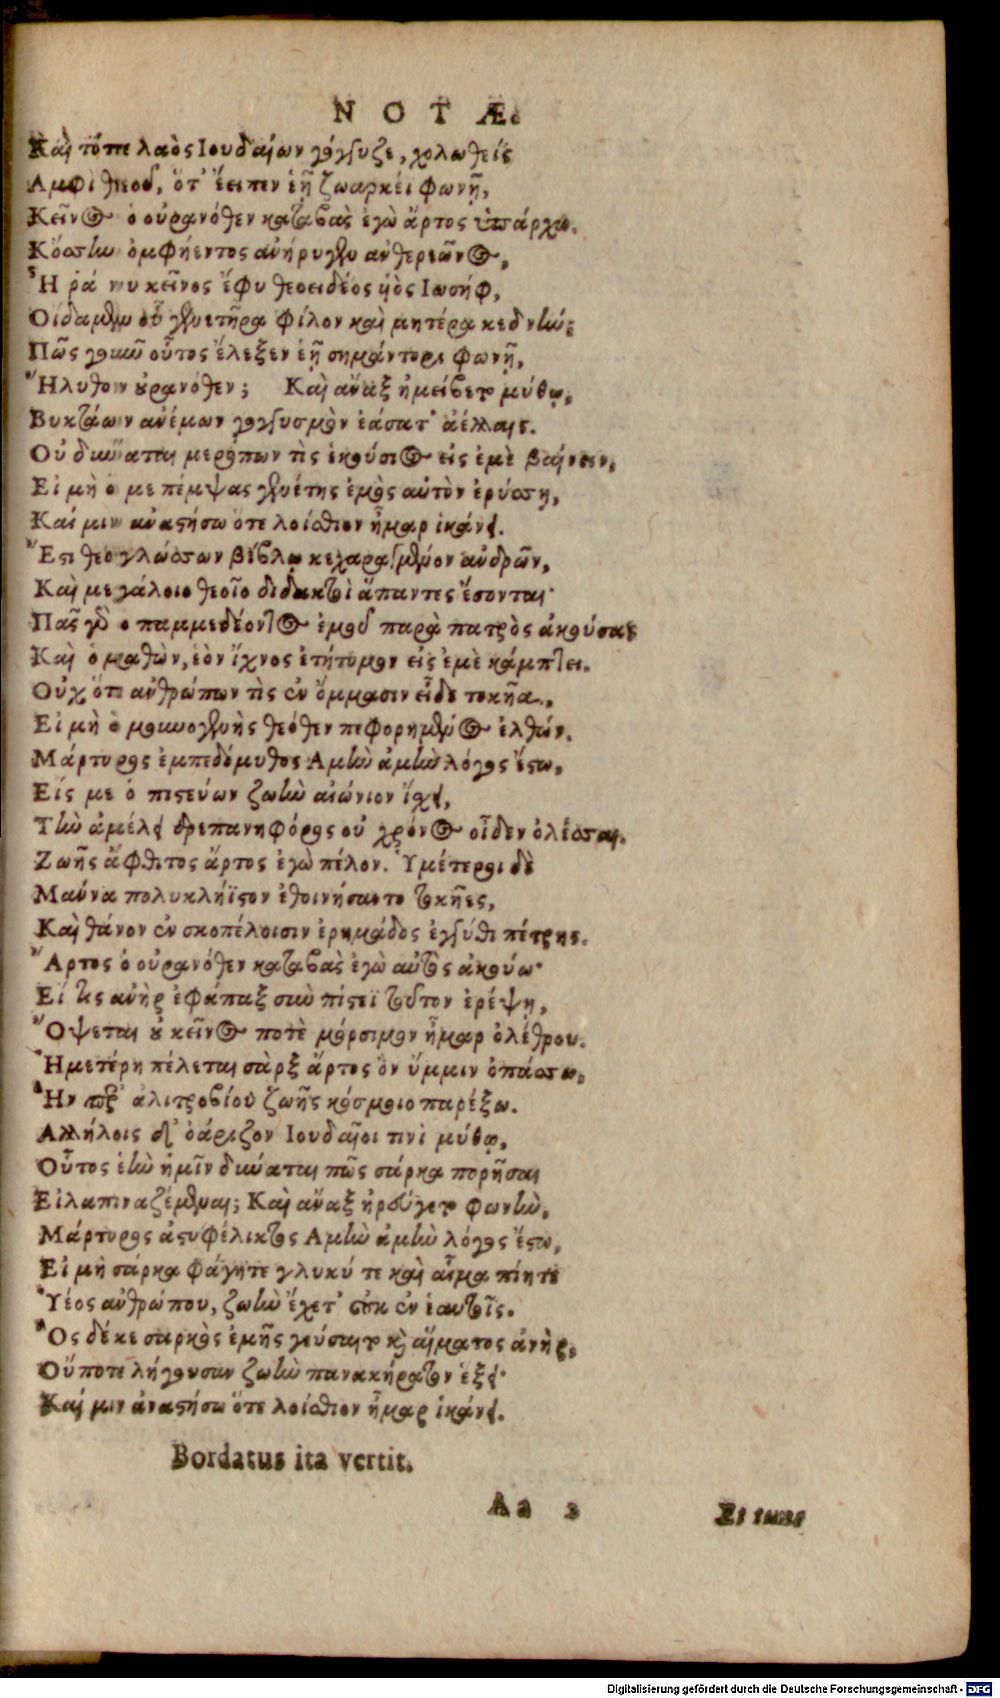 NOTÆ.
Καὶ τότε λαὸς Ιουδαίων γόγγυζε, χολωθεὶς
Αμφὶ θεοῦ, ὅτ' ἔειπεν ἑῇ ζωαρκέϊ φωνῇ,
Κεῖνος ὁ οὐρανόθεν καταβὰς ἐγὼ ἄρτος ὑπάρχω.
Κόσμῳ ὀμφήεντος ἀνήρυγον ἀνθερεῶνος,
Ἦ ῥά νυ κεῖνος ἔφυ θεοειδέος υἱὸς Ιωσήφ,
Οἴδαμεν οὗ γενετῆρα φίλον καὶ μητέρα κεδνήν;
Πῶς γοῦν οὗτος ἔλεξεν ἑῇ σημάντορι φωνῇ,
Ἤλυθον οὐρανόθεν; Καὶ ἄναξ ἠμείβετο μύθῳ,
Βυκτάων ἀνέμων γογγυσμὸν ἐάσατ' ἀέλλαις.
Οὐ δύναται μερόπων τὶς ἑκούσιος εἰς ἐμὲ βαίνειν,
Εἰ μὴ ὁ με πέμψας γενέτης ἐμὸς αὐτὸν ἐρύσσῃ,
Καί μιν ἀναστήσω ὅτε λοίσθιον ἦμαρ ἱκάνει.
Ἔστι θεογλώσσων βίβλῳ κεχαραγμένον ἀνδρῶν,
Καὶ μεγάλοιο θεοῖο διδακτοὶ ἅπαντες ἔσονται·
Πᾶς γὰρ ὁ παμμεδέοντος ἐμοῦ παρὰ πατρὸς ἀκούσας
Καὶ ὁ μαθὼν, ἑὸν ἴχνος ἐτήτυμον εἰς ἐμὲ κάμπτει.
Οὐχ ὅτι ἀνθρώπων τὶς ἐν ὄμμασιν εἶδε τοκῆα,
Εἰ μὴ ὁ μουνογενὴς θεόθεν πεφορημένος ἐλθών.
Μάρτυρος ἐμπεδόμυθος Αμὴν ἀμὴν λόγος ἔστω,
Εἰς με ὁ πιστεύων ζωὴν αἰώνιον ἴσχει,
Τὴν ἀμέλει δρεπανηφόρος οὐ χρόνος οἶδεν ὀλέσσαι.
Ζωῆς ἄφθιτος ἄρτος ἐγὼ πέλον. Ὑμέτεροι δὲ
Μάννα πολυκλήϊστον ἐθοινήσαντο τοκῆες,
Καὶ θάνον ἐν σκοπέλοισιν ἐρημάδος ἐγγύθι πέτρης.
Ἄρτος ὁ οὐρανόθεν καταβὰς ἐγὼ αὐτὸς ἀκούω·
Εἴ τις ἀνὴρ ἐφάπαξ σὺν πίστεϊ τοῦτον ἐρέψῃ,
Ὄψεται οὐ κεῖνος ποτὲ μόρσιμον ἦμαρ ὀλέθρου.
Ἡμετέρη πέλεται σὰρξ ἄρτος ὃν ὔμμιν ὀπάσσω,
Ἣν περ ἀλιτροβίου ζωῆς κόσμοιο παρέξω.
Αλλήλοις δ' ὀάριζον Ιουδαῖοι τινὶ μύθῳ,
Οὗτος ἑὴν ἡμῖν δύναται πῶς σάρκα πορῆσαι
Εἰλαπιναζέμεναι; Καὶ ἄναξ ἠρεύγετο φωνὴν,
Μάρτυρος ἀστυφέλικτος Αμὴν ἀμὴν λόγος ἔστω,
Εἰ μὴ σάρκα φάγητε γλυκύ τε καὶ αἷμα πίητε
Ὑέος ἀνθρώπου, ζωὴν ἔχετ' οὐκ ἐν ἑαυτοῖς.
Ὃς δέ κε σαρκὸς ἐμῆς γεύσαιτο καὶ αἵματος ἀνὴρ,
Οὔποτε λήγουσαν ζωὴν πανακήρατον ἕξει·
Καί μιν ἀναστήσω ὅτε λοίσθιον ἦμαρ ἱκάνει.
Bordatus ita vertit.
Aa 2
Digitalisierung gefördert durch die Deutsche Forschungsgemeinschaft - DFG